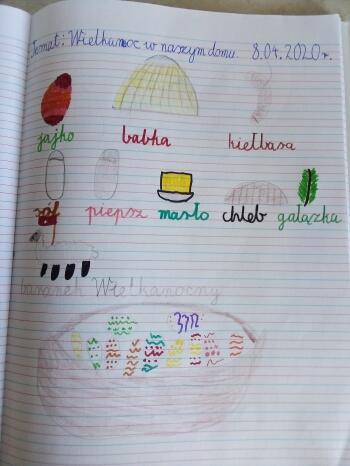 Temat: Wielkanoc w naszym domu. 8.04.2020r.
jajko babka kiełbasa
sól piepsz masło chleb gałązka
baranek Wielkanocny